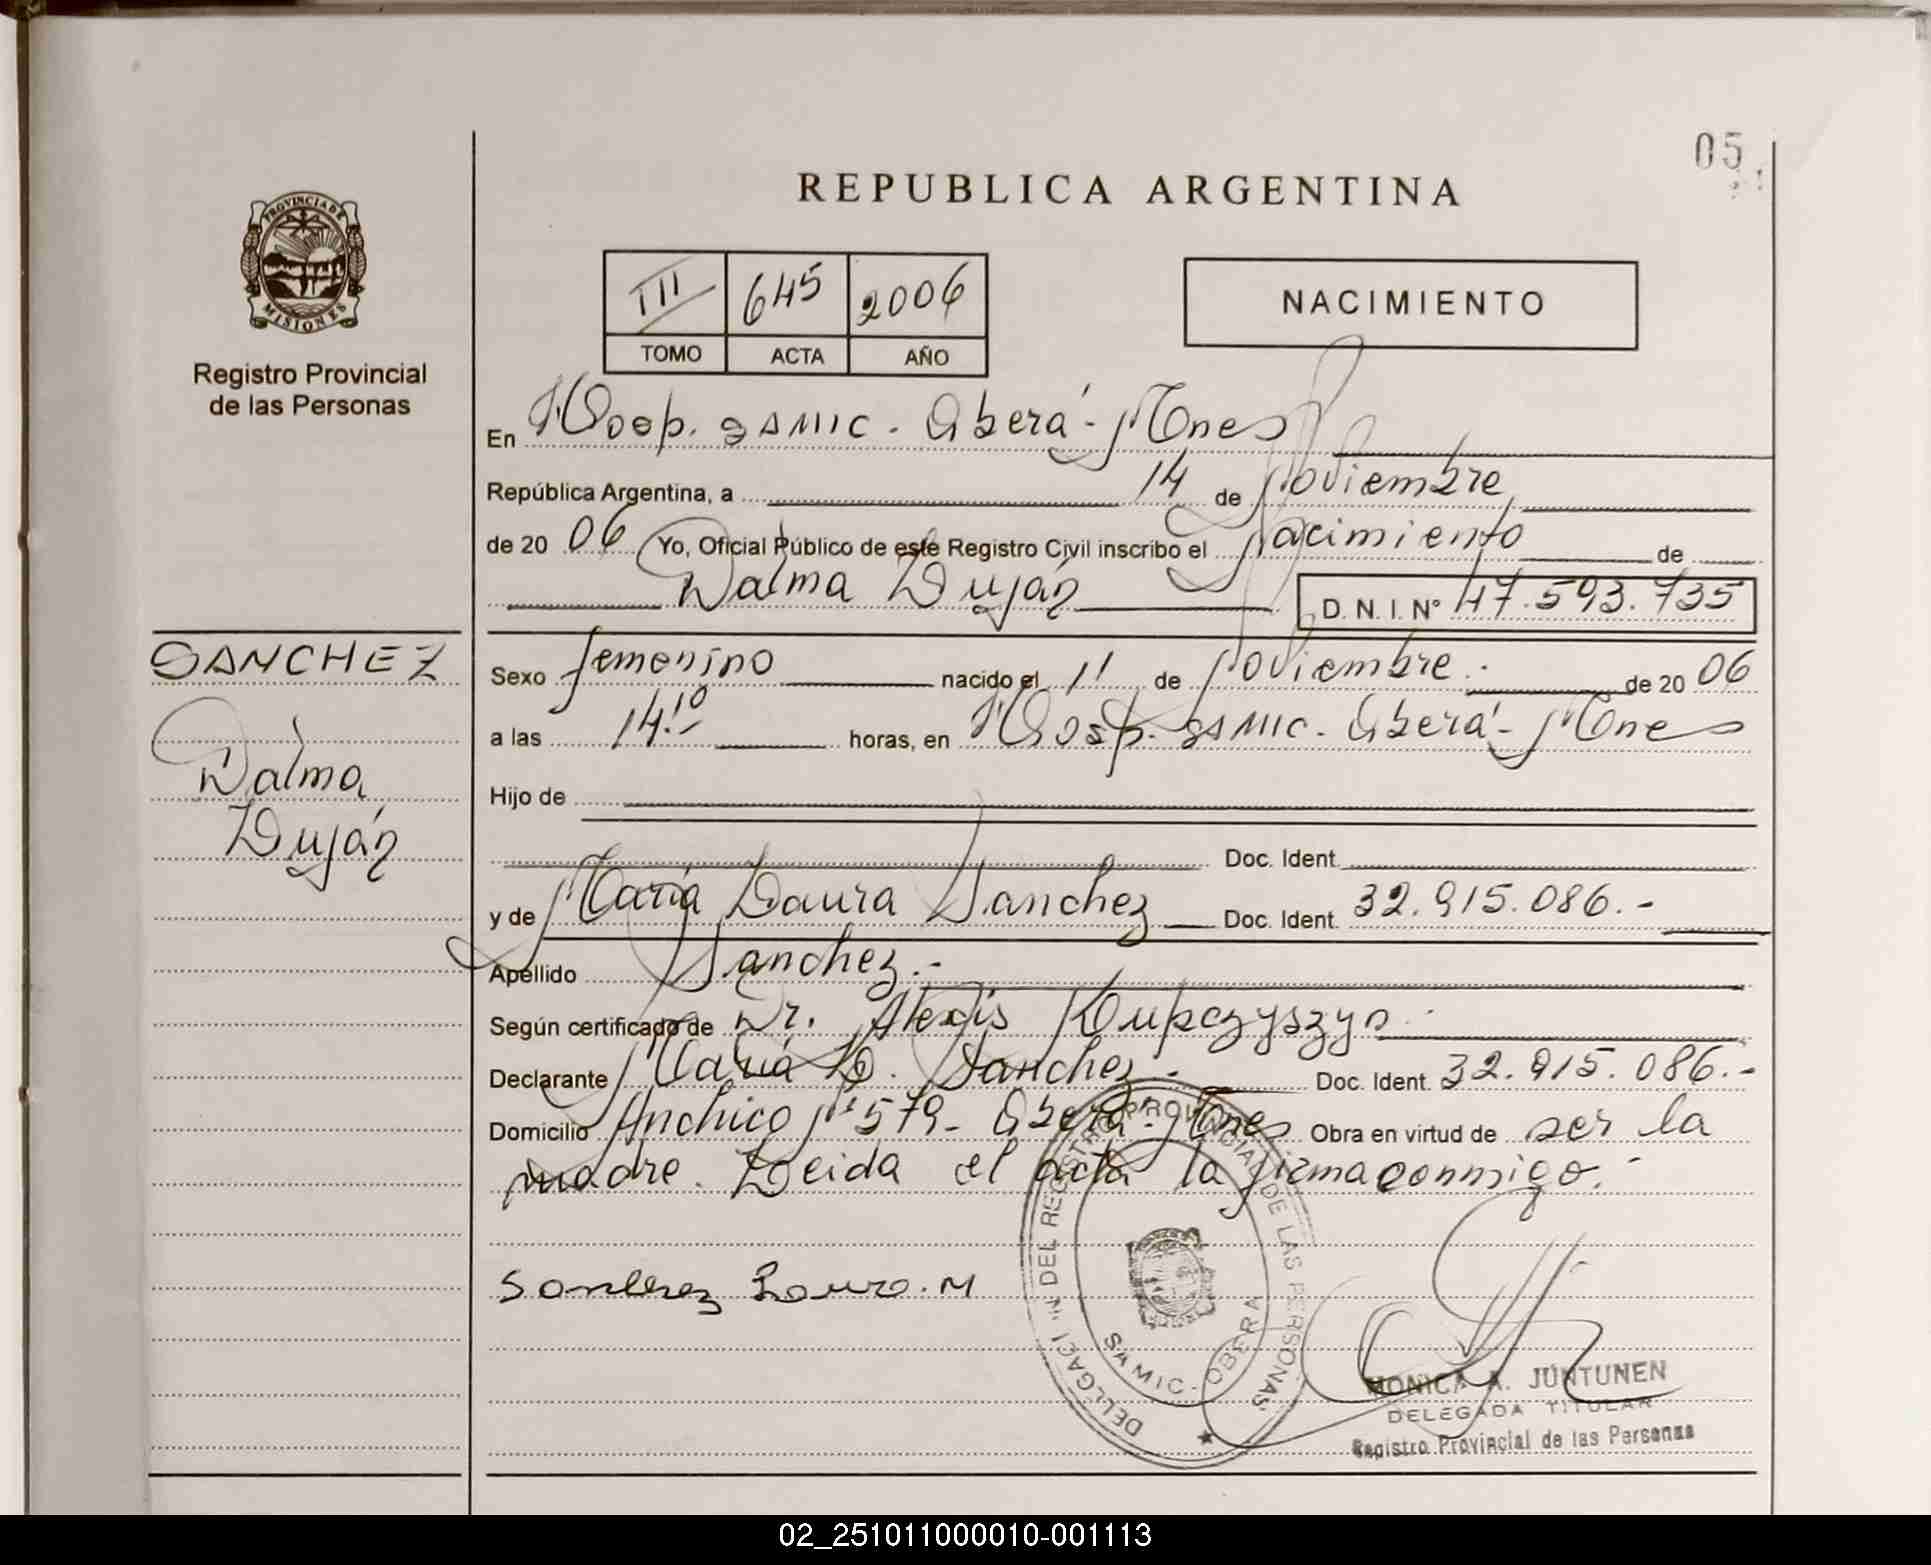 05
REPUBLICA ARGENTINA
PROVINCIA DE
MISIONES
Registro Provincial
de las Personas
III 645 2006
TOMO ACTA AÑO
NACIMIENTO
En Hosp. SAMIC. Oberá - Mnes
República Argentina, a 14 de Noviembre
de 20 06 Yo, Oficial Público de este Registro Civil inscribo el Nacimiento de
Dalma Luján D. N. I. N° 47.593.735
SANCHEZ
Dalma
Luján
Sexo femenino nacido el 11 de Noviembre. de 20 06
a las 14.10 horas, en Hosp. SAMIC. Oberá - Mnes
Hijo de
Doc. Ident.
y de María Laura Sanchez Doc. Ident. 32.915.086.-
Apellido Sanchez.-
Según certificado de Dr. Alexis Kupczyszyn.
Declarante María L. Sanchez.- Doc. Ident. 32.915.086.-
Domicilio Anchico Nº 579- Oberá - Mnes Obra en virtud de ser la
madre. Leida el acta la firma conmigo.-
Sanchez Laura. M
DELEGACI N DEL REGISTRO PROVINCIAL DE LAS PERSONAS
SAMIC - OBERA
MONICA A. JUNTUNEN
DELEGADA TITULAR
Registro Provincial de las Personas
02_251011000010-001113